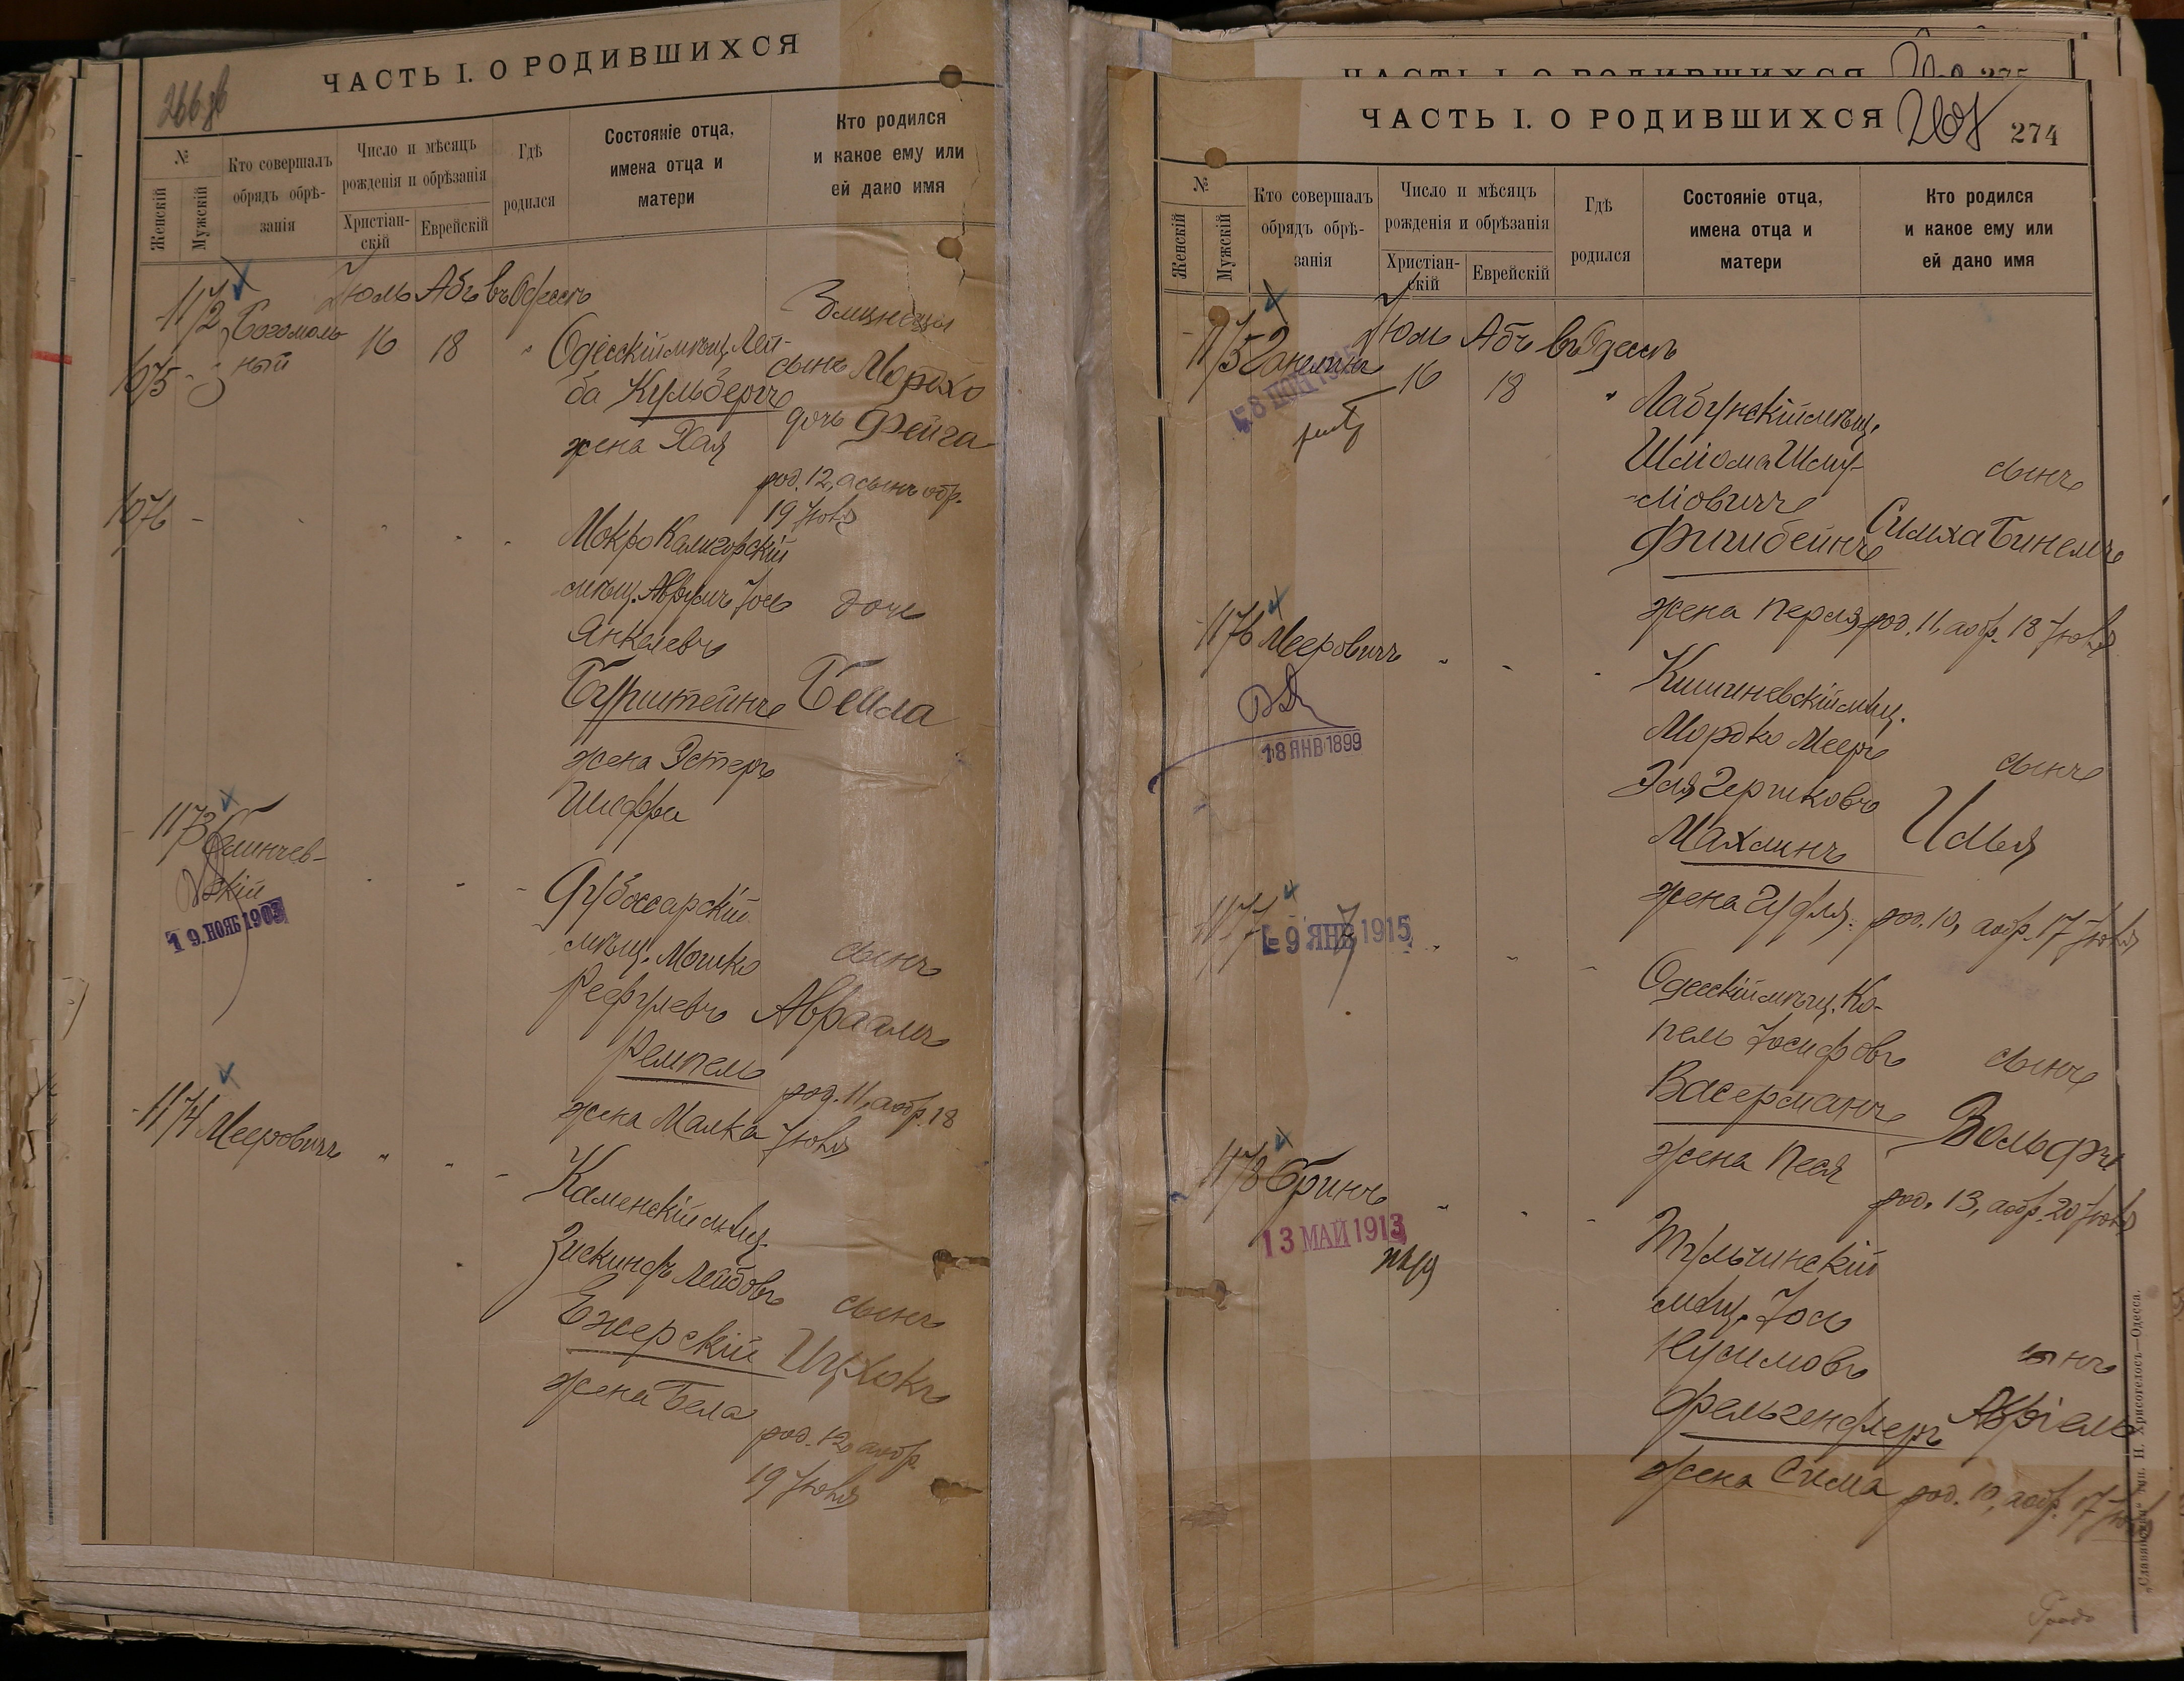 266 об
ЧАСТЬ I. О РОДИВШИХСЯ
№
Женскій
Мужскій
Кто совершалъ
обрядъ обрѣ-
занія
Число и мѣсяцъ
рожденія и обрѣзанія
Христіан-
скій
Еврейскій
Гдѣ
родился
Состояніе отца,
имена отца и
матери
Кто родился
и какое ему или
ей дано имя
Іюль Абъ въ Одессѣ
1172 Богомоль- 16 18 "
1075 ный
Близнецы
Одесскій мѣщ. Лей-
ба Кульбергъ
жена Хая
сынъ Мордхо
дочь Фейга
род. 12, а сынъ обр.
19 Іюля
1076
Мокро Калигорскій
мѣщ. Аврумъ Іось
Янкелевъ
Бурштейнъ
жена Эстеръ
Шифра
дочь
Бейла
1173
скій
19. НОЯБ 1903
Дубоссарскій
мѣщ. Мошко
Рефулевъ
Ремпель
жена Малка
сынъ
Авраамъ
род. 11, а обр. 18
Іюля
1174 Мееровичъ
Каменскій мѣщ.
Зискиндъ Лейбовъ
Ежерскій
жена Бела
сынъ
Ицхокъ
род. 12, а обр.
19 Іюля
ЧАСТЬ I. О РОДИВШИХСЯ
275
ЧАСТЬ I. О РОДИВШИХСЯ
267
274
№
Женскій
Мужскій
Кто совершалъ
обрядъ обрѣ-
занія
Число и мѣсяцъ
рожденія и обрѣзанія
Христіан-
скій
Еврейскій
Гдѣ
родился
Состояніе отца,
имена отца и
матери
Кто родился
и какое ему или
ей дано имя
Іюль Абъ въ Одессѣ
1175 16 18 "
Лабунскій мѣщ.
Шліома Шму-
ліовичъ
Фишбейнъ
жена Перля
сынъ
Симха Бинемъ
род. 11, а обр. 18 Іюля
1176 Мееровичъ
18 ЯНВ 1899
Кишиневскій мѣщ.
Мордко Мееръ
Эля Гершковъ
Махлинъ
жена Гудля
сынъ
Илья
род. 10, а обр. 17 Іюля
1177
- 9 ЯНВ 1915
Одесскій мѣщ. Ко-
пель Іосифовъ
Васерманъ
жена Песя
сынъ
Вольфъ
род. 13, а обр. 20 Іюля
1178 Бринъ
13 МАЙ 1913
Тульчинскій
мѣщ. Іось
Нусимовъ
Фельгендлеръ
жена Сима
сынъ
род. 10, а обр. 17 Іюля
„Славянская“ тип. Н. Хрисогелосъ—Одесса.